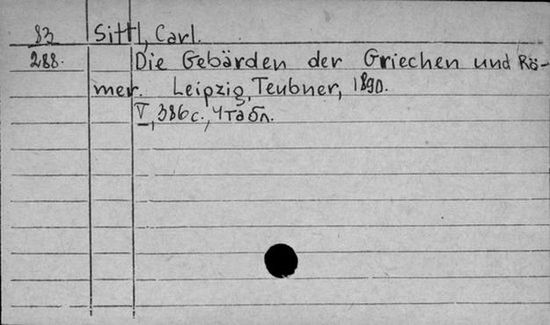 83 Sittl, Carl.
288. Die Gebärden der Griechen und Rö-
mer. Leipzig, Teubner, 1890.
V, 386 с., 4 табл.